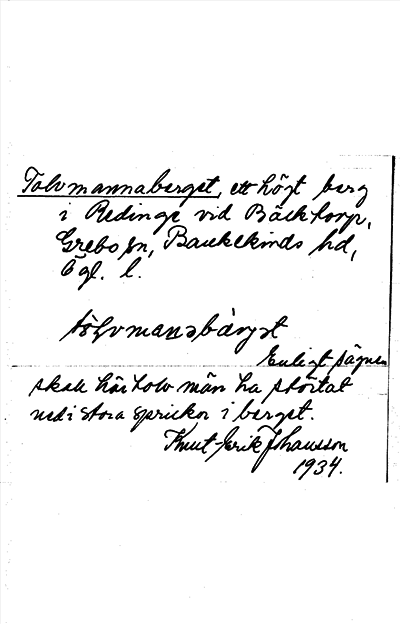 Tolvmannaberget, ett högt berg
i Redinge vid Bäcktorp,
Grebo sn, Bankekinds hd,
Ögl. l.
Enligt sägnen
skall här tolv män ha störtat
ned i stora sprickor i berget.
Knut-Erik Johansson
1934.